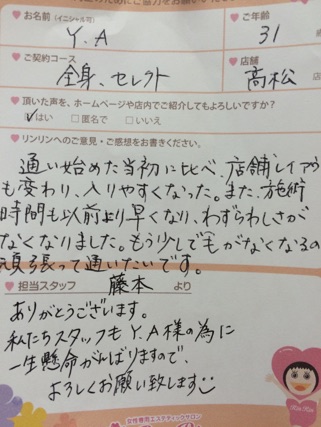 ♥お名前(イニシャル可) ♥ご年齢
Y.A 31
♥ご契約コース ♥店舗
全身、セレクト 高松
♥頂いた声を、ホームページや店内でご紹介してもよろしいですか？
はい □匿名で □いいえ
♥リンリンへのご意見・ご感想をお書きください。
通い始めた当初に比べ、店舗レイアウ
も変わり、入りやすくなった。また、施術
時間も以前より早くなり、わずらわしさが
なくなりました。もう少しで毛がなくなるの
頑張って通いたいです。
♥担当スタッフ 藤本 より
ありがとうございます。
私たちスタッフもY.A様の為に
一生懸命がんばりますので、
よろしくお願い致します
女性専用エステティックサロン